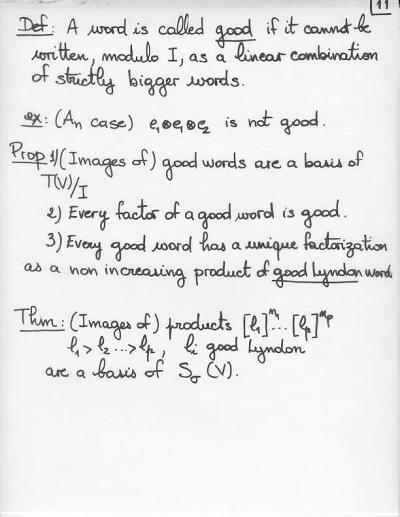 11
Def: A word is called good if it cannot be
written, modulo I, as a linear combination
of strictly bigger words.
ex: (An case) e₁⊗e₁⊗e₂ is not good.
Prop 1) (Images of) good words are a basis of
T(V)/I
2) Every factor of a good word is good.
3) Every good word has a unique factorization
as a non increasing product of good Lyndon word
Thm: (Images of) products [l₁]^n₁ ... [lp]^np
l₁ > l₂ ... > lp, li good Lyndon
are a basis of Sσ(V).